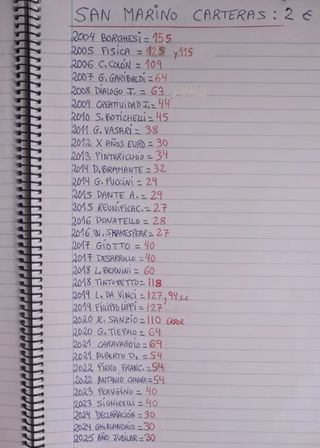 SAN MARINO CARTERAS: 2 €
2004 BORGHESI = 155
2005 FISICA = 125 y 115
2006 C. COLÓN = 109
2007 G. GARIBALDI = 64
2008 DIALOGO I. = 63
2009 CREATIVIDAD I. = 44
2010 S. BOTICHELLI = 45
2011 G. VASARI = 38
2012 X AÑOS EURO = 30
2013 PINTURICCHIO = 34
2014 D. BRAMANTE = 32
2014 G. PUCCINI = 29
2015 DANTE A. = 29
2015 REUNIFICAC. = 27
2016 DONATELLO = 28
2016 W. SHAKESPEAR = 27
2017 GIOTTO = 40
2017 DESARROLLO = 40
2018 L. BERNINI = 60
2018 TINTORETTO = 118
2019 L. DA VINCI = 127, 94 s.c
2019 FILIPPO LIPPI = 127
2020 R. SANZIO = 110 ERROR
2020 G. TIEPOLO = 64
2021 CARAVAGGIO = 69
2021 ALBERTO D. = 54
2022 PIERO FRANC. = 54
2022 ANTONIO CANOVA = 54
2023 PERUGINO = 40
2023 SIGNORELLI = 40
2024 DECLARACIÓN = 30
2024 = 30
2025 AÑO JUBILAR = 30